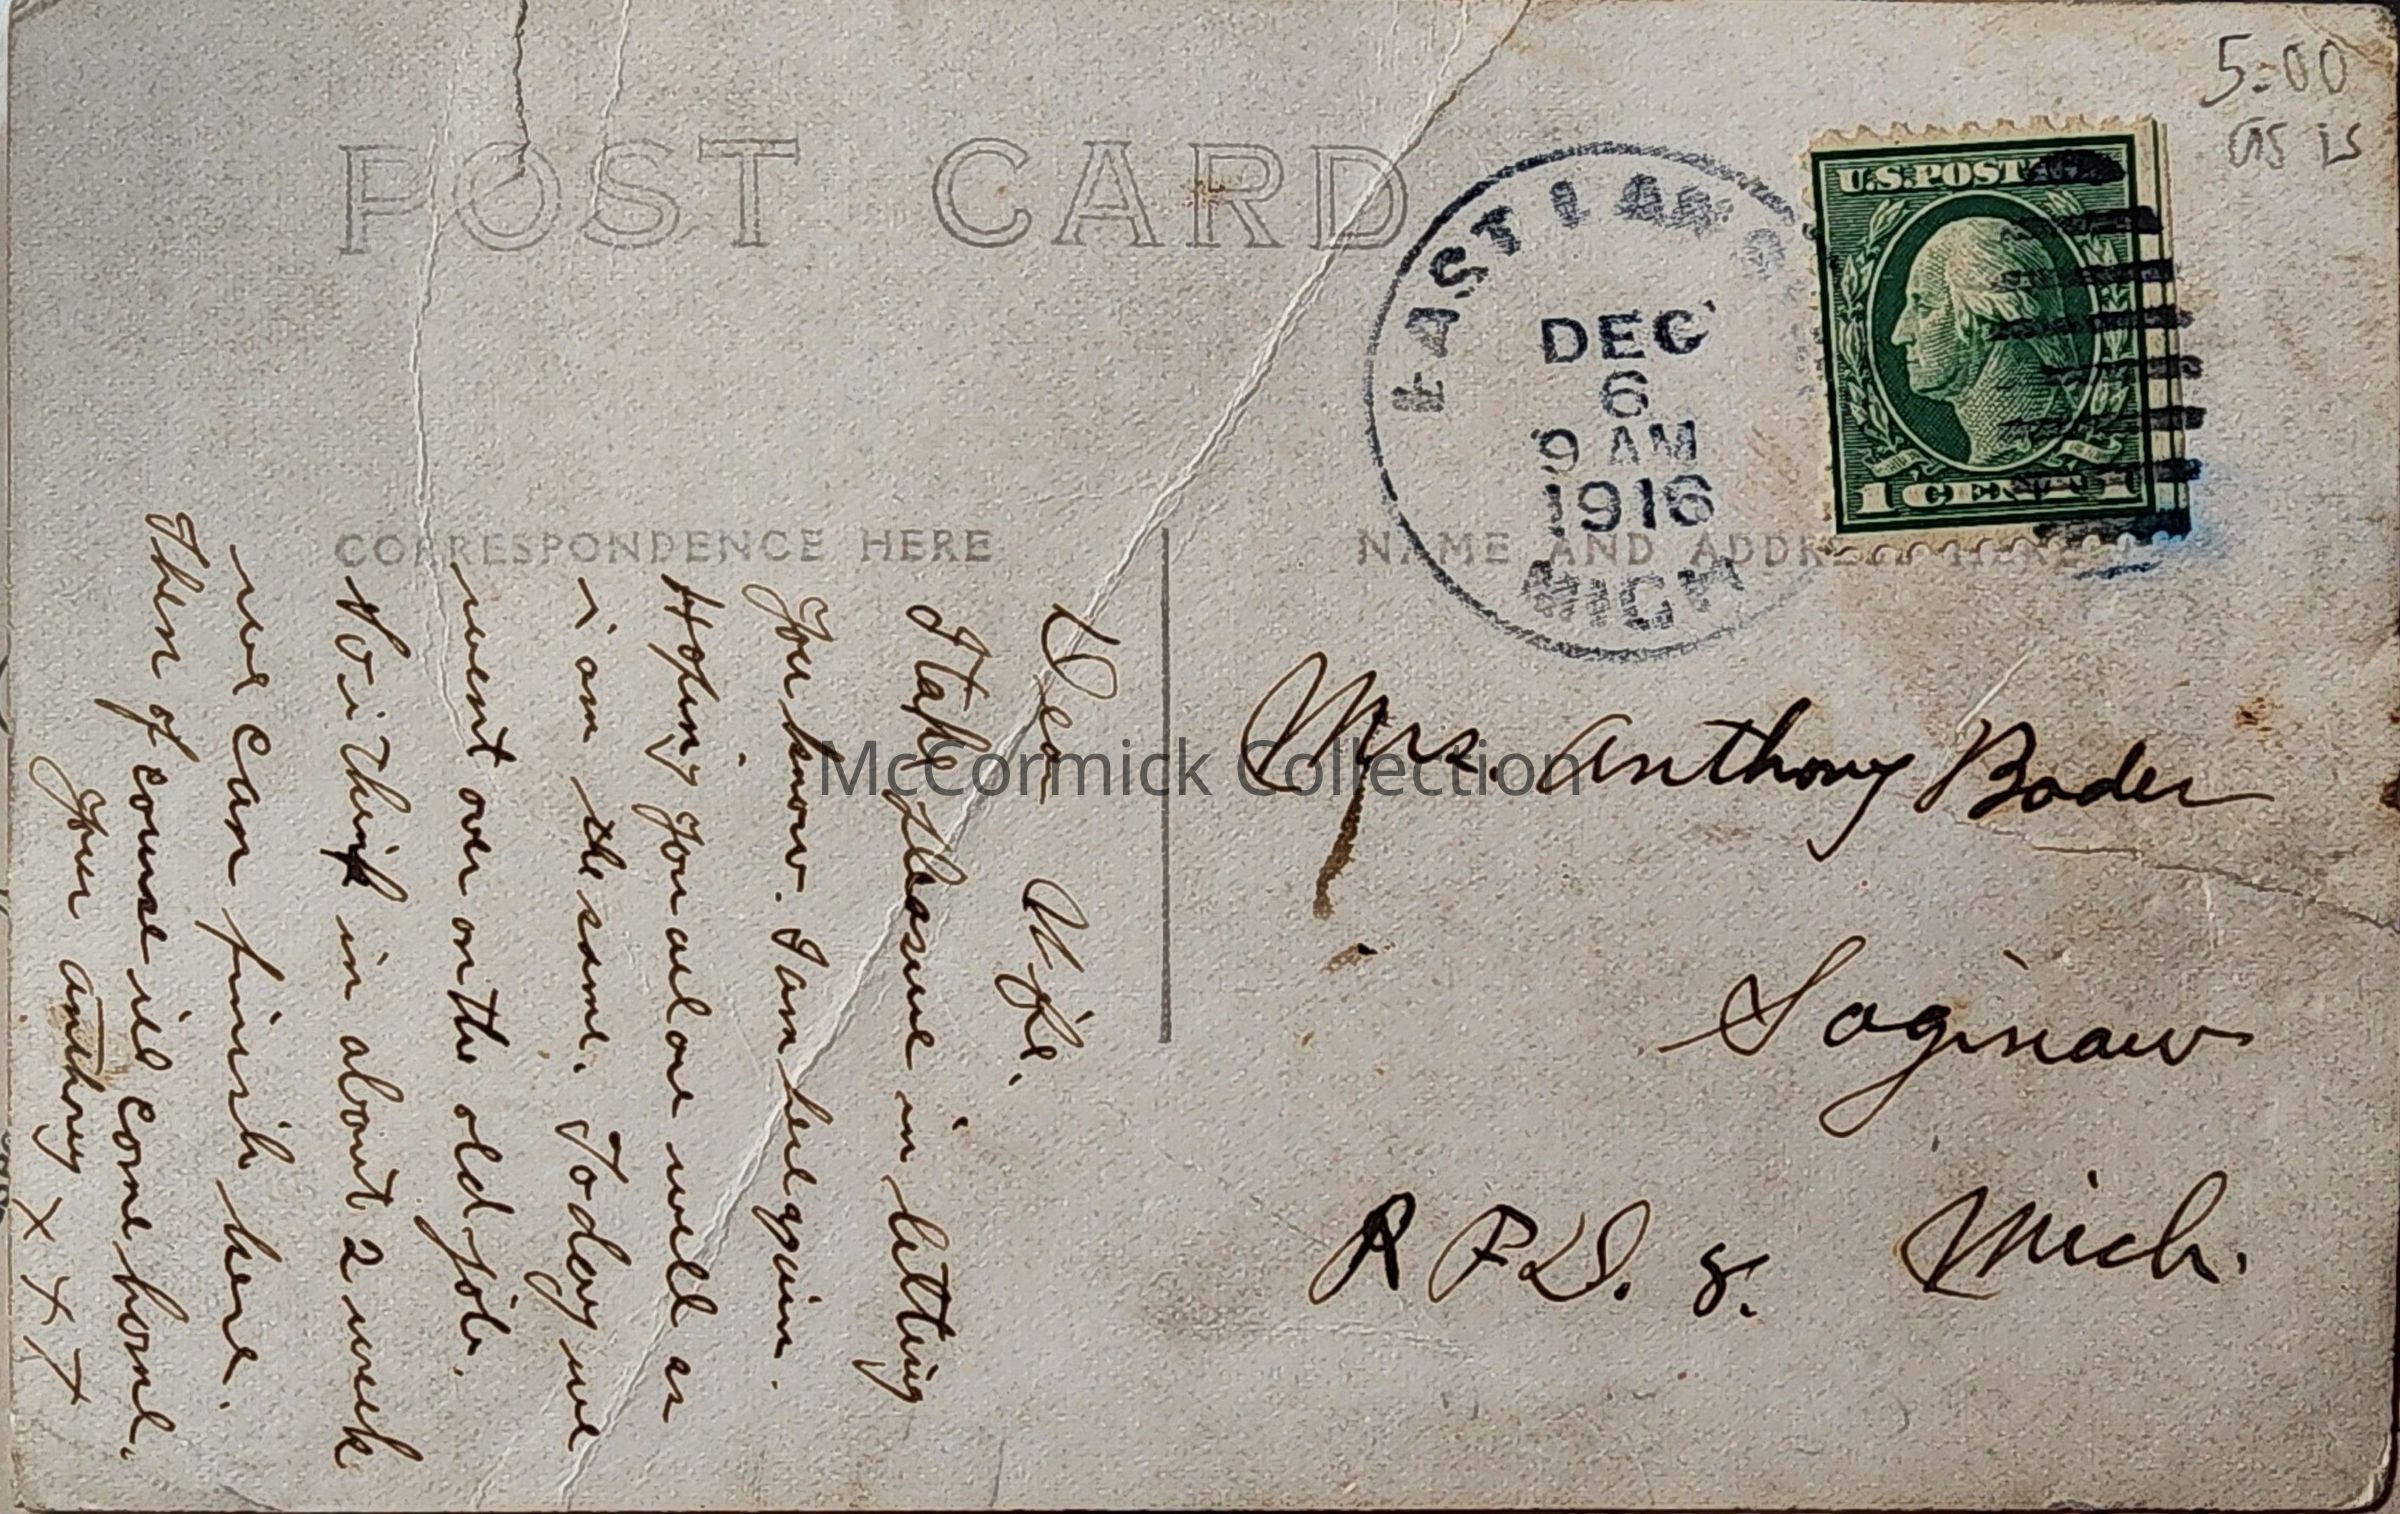 5.00
as is
POST CARD
U.S. POSTAGE
1 CENT 1
EAST LANS
DEC
6
9 AM
1916
MICH
CORRESPONDENCE HERE
NAME AND ADDRESS HERE
Mrs. Anthony Bader
Saginaw
Mich.
R F D. 8.
Dear Wife.
I take pleasure in letting
you know. I am here again.
Hoping you all are well as
i am the same. To day we
went over on the old job.
No i think in about 2 week
we can finish here.
Then of course il come home.
Your Anthony x x x
McCormick Collection